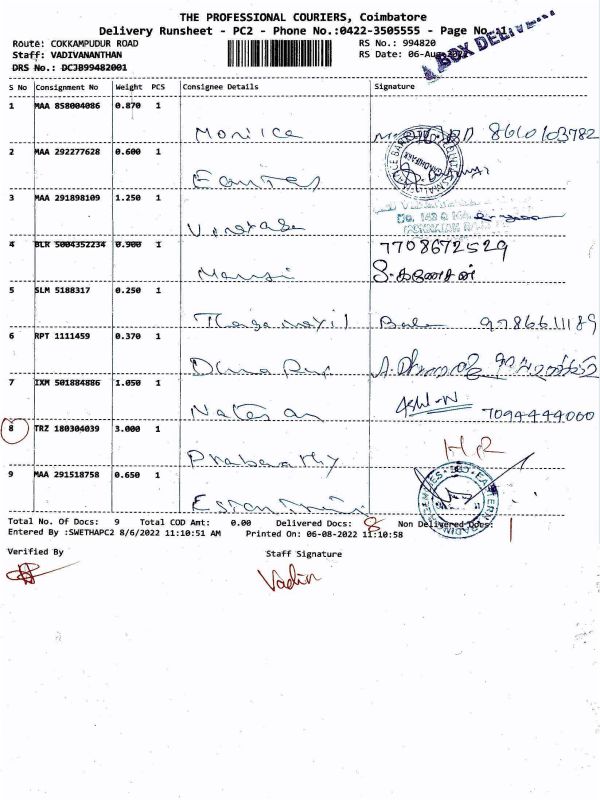 THE PROFESSIONAL COURIERS, Coimbatore
Delivery Runsheet - PC2 - Phone No.:0422-3505555 - Page No.:1
BOX DELIVE
Route: COKKAMPUDUR ROAD RS No.: 994820
Staff: VADIVANANTHAN RS Date: 06-Aug-2022
DRS No.: DCJB99482001
S No Consignment No Weight PCS Consignee Details Signature
1 MAA 858004086 0.870 1
Monica 8610103782
2 MAA 292277628 0.600 1
3 MAA 291898109 1.250 1
4 BLR 5004352234 0.900 1 7708672529
5 SLM 5188317 0.250 1
Bala 9786611189
6 RPT 1111459 0.370 1
7 IXM 501884886 1.050 1
Natesan 7094444060
8 TRZ 180304039 3.000 1
Prabaathy
9 MAA 291518758 0.650 1
Total No. Of Docs: 9 Total COD Amt: 0.00 Delivered Docs: 8 Non Delivered Docs: 1
Entered By :SWETHAPC2 8/6/2022 11:10:51 AM Printed On: 06-08-2022 11:10:58
Verified By Staff Signature
Vadin